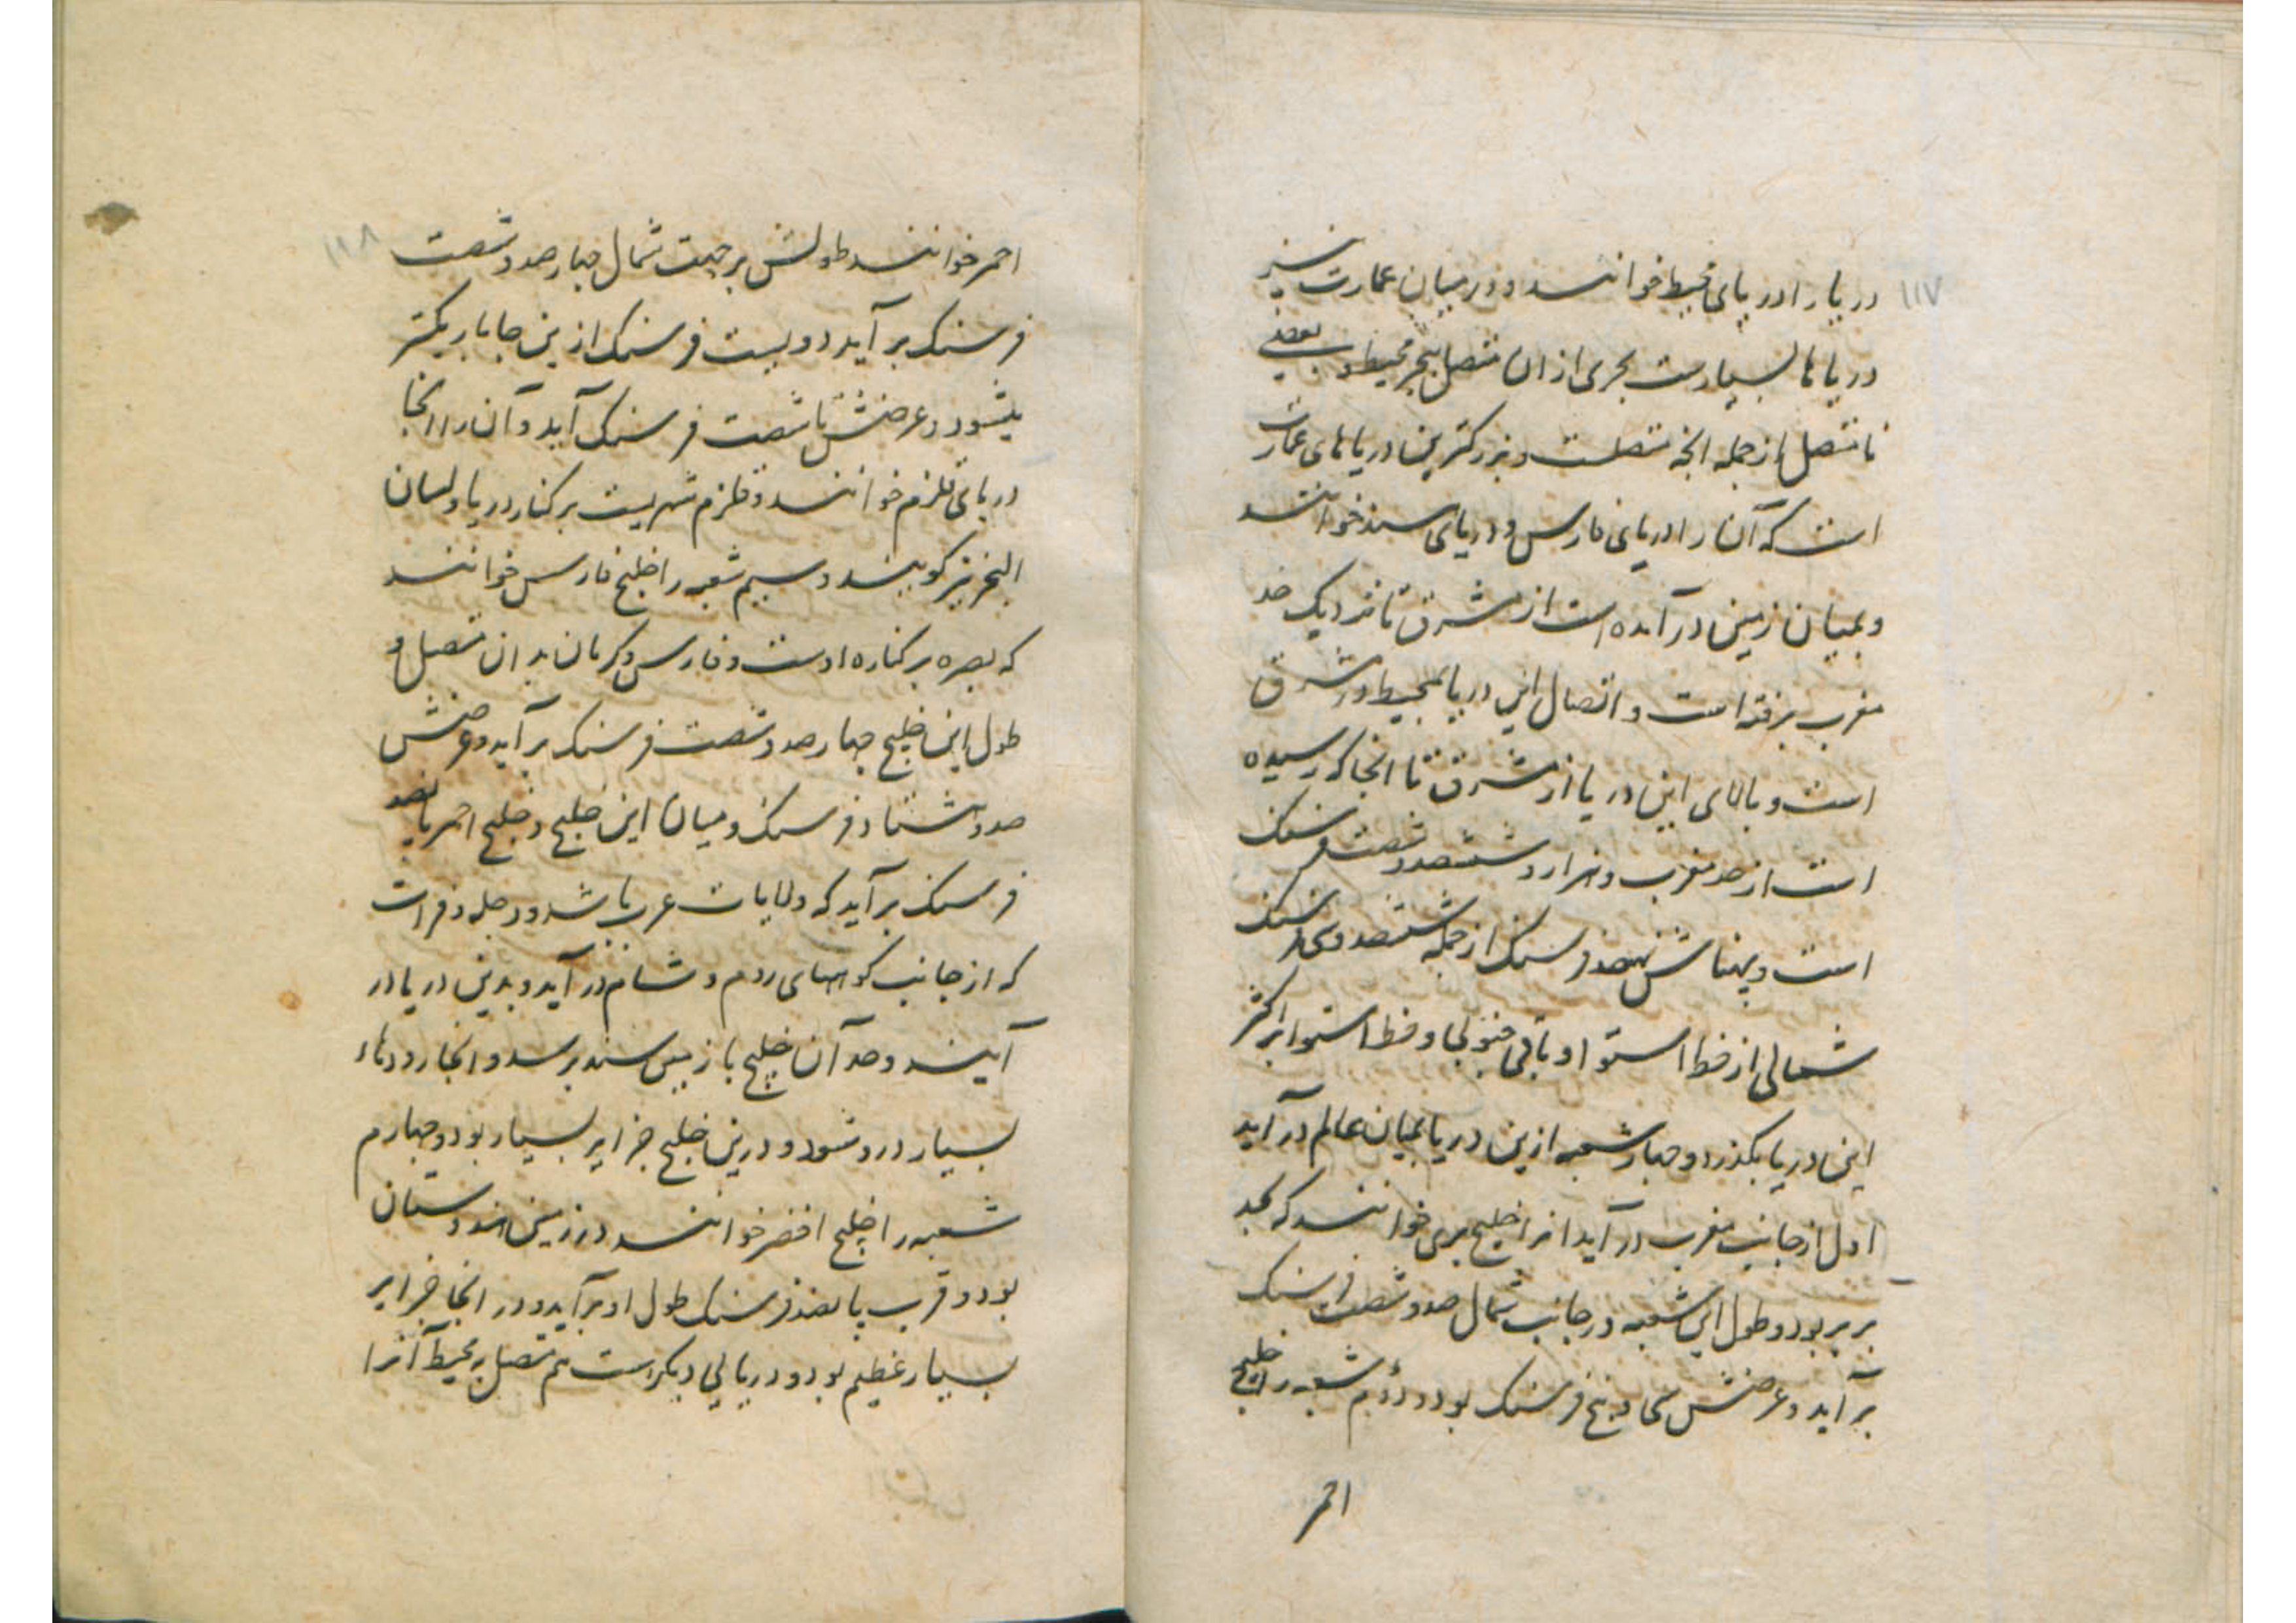 ۱۱۷
دریا را دریای محیط خوانند و در میان عمارت نیز
دریاها بسیارست بحری ازان متصل ببحر محیط و بعضی
نا متصل از جمله انچه متصلست و بزرکترین دریاهای عمارت
است که آن را دریای فارس و دریای سند خوانند
و بمیان زمین در آمده است از مشرق تا نزدیک حد
مغرب برفته است و اتصال این دریا بمحیط در مشرق
است و بالای این دریا از مشرق تا انجا که رسیده
است از حد مغرب و هزار و ششصد و شصت فرسنک
است و پهناش نهصد فرسنک از جمله ششصد و سی فرسنک
شمالی از خط استوا و باقی جنوبی و خط استوا بر اکثر
این دریا بکذرد و چهار شعبه ازین دریا بمیان عالم در آید
اول از جانب مغرب در آید انرا خلیج بربری خوانند که بحد
بربر بود و طول این شعبه در جانب شمال صد و شصت فرسنک
بر آید و عرضش سی و پنج فرسنک بود و دوم شعبه را خلیج
احمر
۱۱۸
احمر خوانند طولش بر جهت شمال چهار صد و شصت
فرسنک بر آید دویست فرسنک ازین جا باریکتر
میشود و عرضش تا شصت فرسنک آید و آن را انجا
دریای قلزم خوانند و قلزم شهریست بر کنار دریا و لسان
البحر نیز کویند و سیم شعبه را خلیج فارس خوانند
که بصره بر کناره اوست و فارس و کرمان بدان متصل و
طول این خلیج چهار صد و شصت فرسنک بر آید و عرضش
صد و هشتاد فرسنک و میان این خلیج و خلیج احمر پانصد
فرسنک بر آید که ولایات عرب باشد و دجله و فرات
که از جانب کوههای روم و شام در آید و بدین دریا در
آیند و حد آن خلیج با زمین سند برسد و انجا رودهاء
بسیار درو شود و درین خلیج جزایر بسیار بود و چهارم
شعبه را خلیج اخضر خوانند در زمین هندوستان
بود و قرب پانصد فرسنک طول او بر آید و در انجا جزایر
بسیار عظیم بود و دریائی دیکر است هم متصل به محیط آنرا